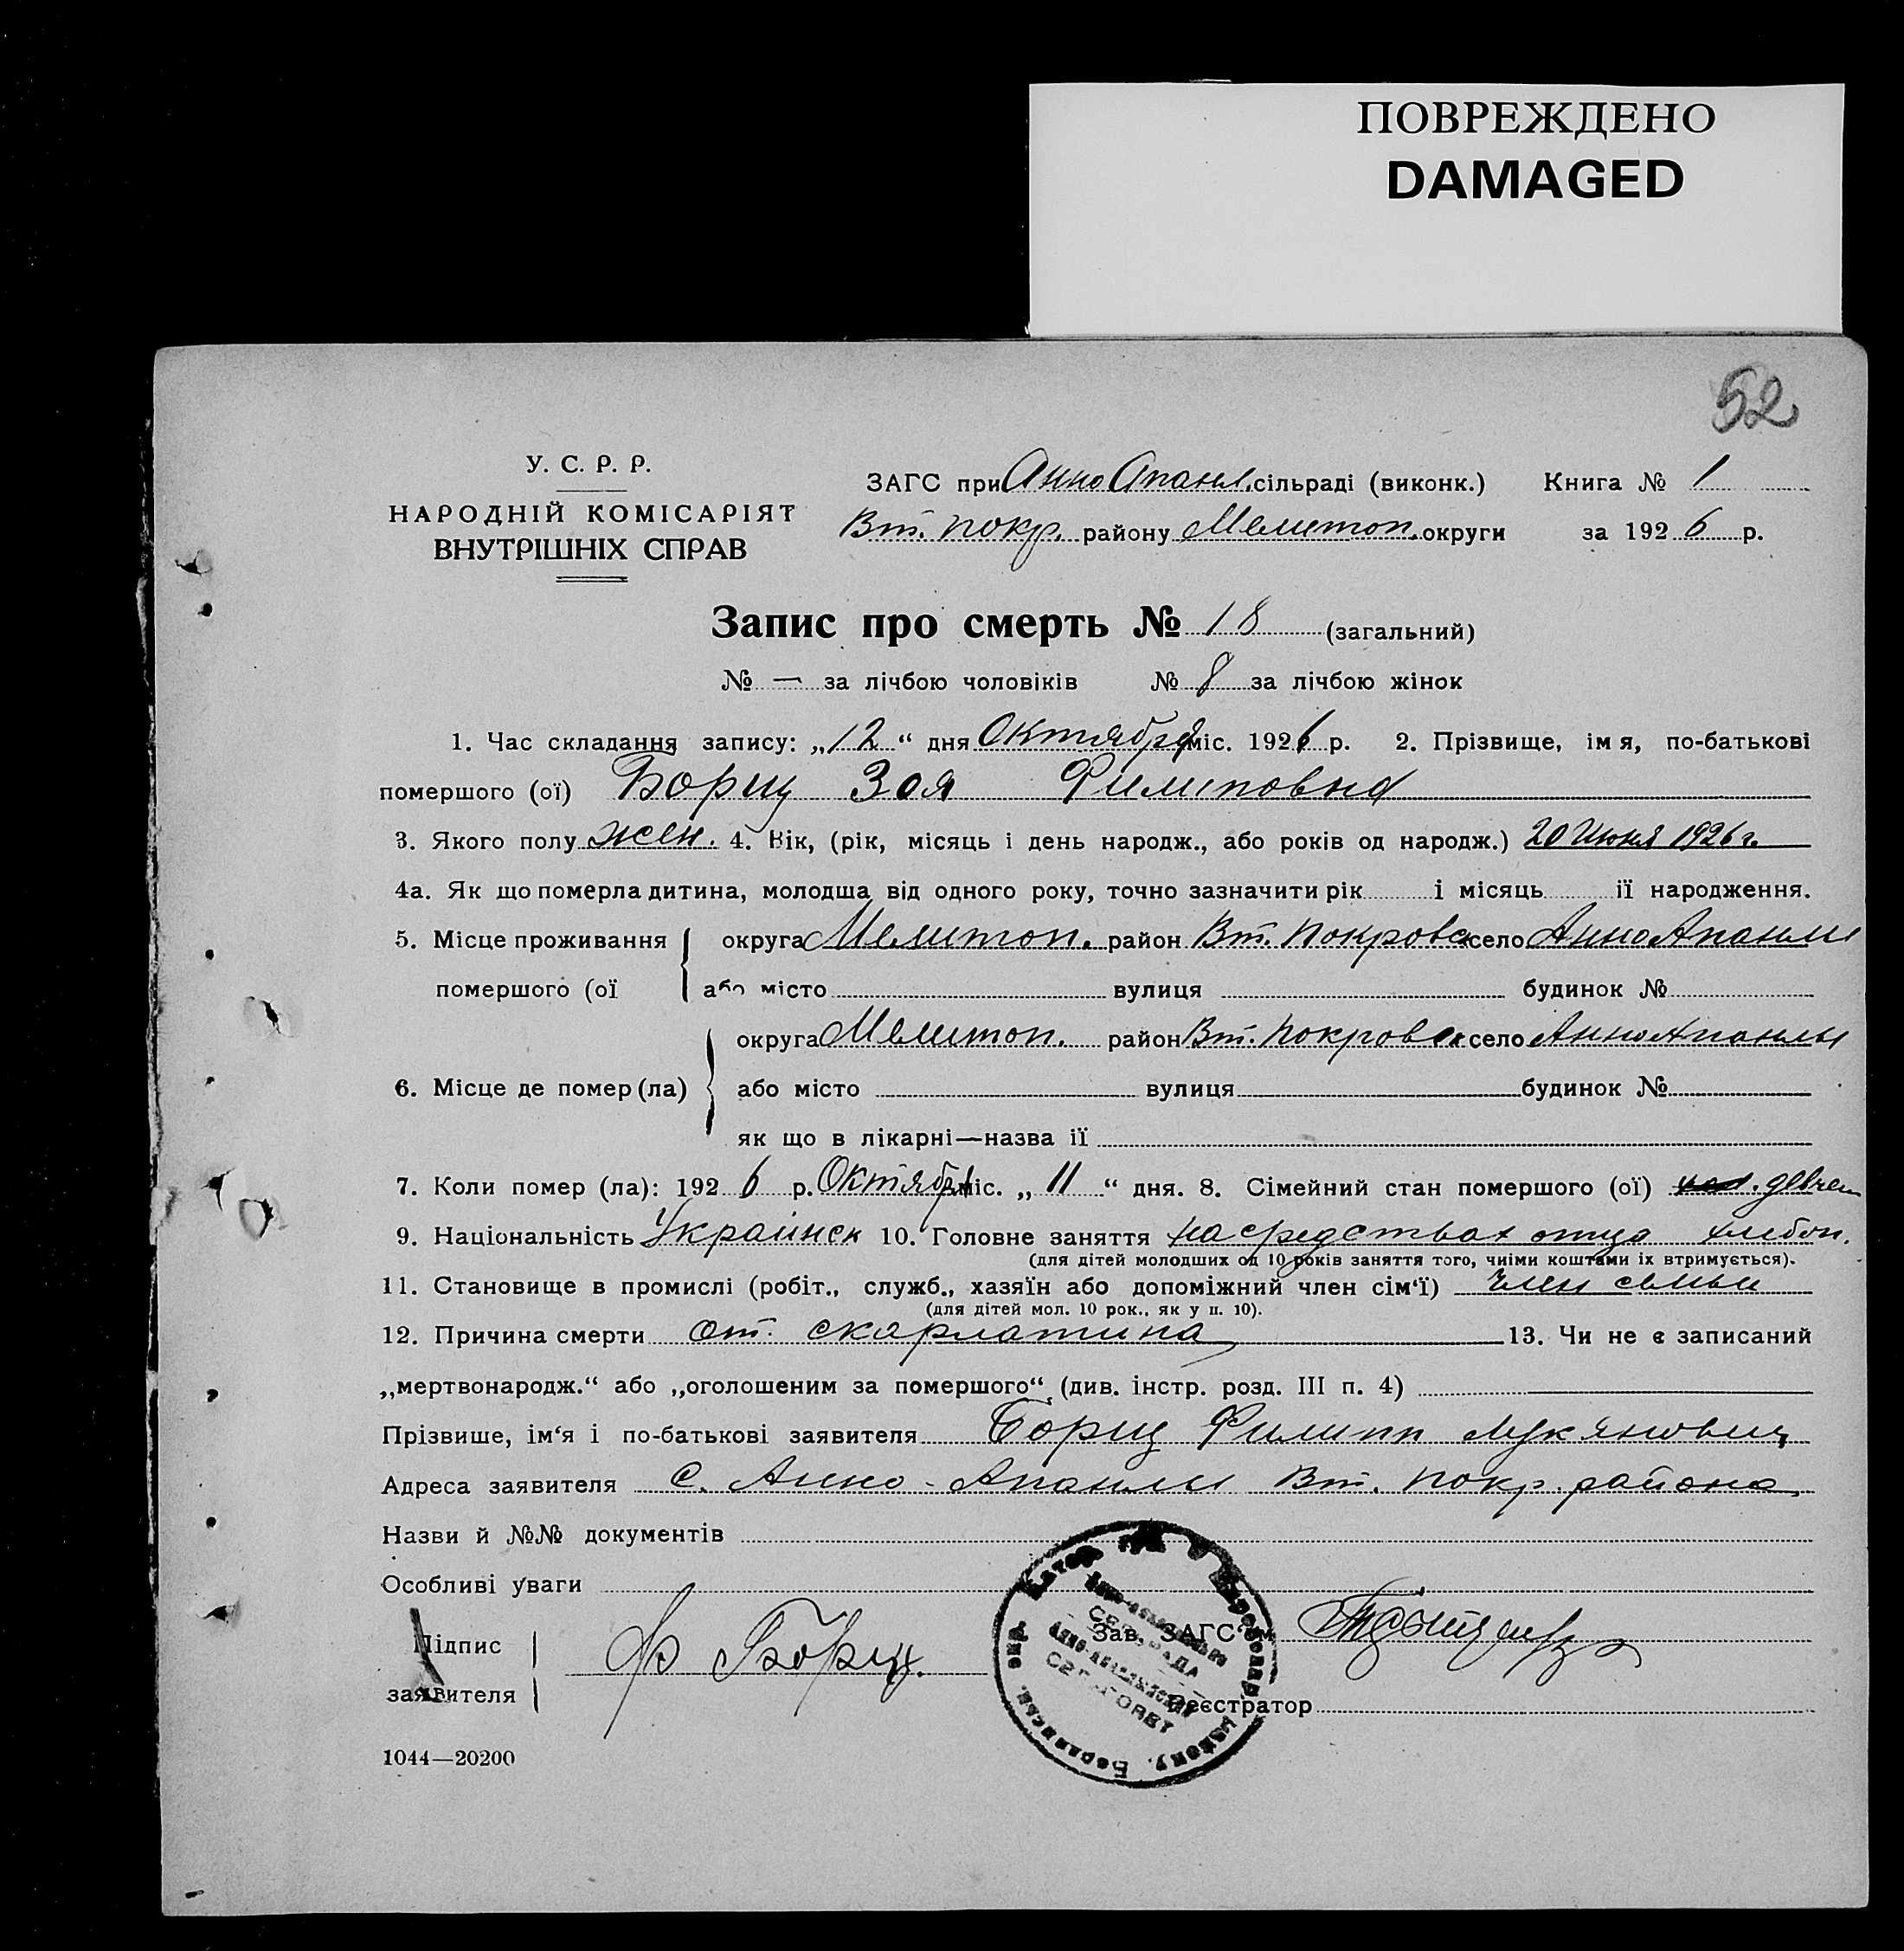 ПОВРЕЖДЕНО
DAMAGED
52
У. С. Р. Р.
НАРОДНІЙ КОМІСАРІЯТ
ВНУТРІШНІХ СПРАВ
ЗАГС при Анно Апанл. сільраді (виконк.) Книга № 1
Вт. Покр. району Мелитоп. округи за 1926 р.
Запис про смерть № 18 (загальний)
№ — за лічбою чоловіків № 8 за лічбою жінок
1. Час складання запису: „12“ дня Октября міс. 1926 р. 2. Прізвище, імя, по-батькові
помершого (ої) Борщ Зоя Филиповна
3. Якого полу жен. 4. Вік, (рік, місяць і день народж., або років од народж.) 20 Июня 1926 г.
4а. Як що померла дитина, молодша від одного року, точно зазначити рік і місяць її народження.
5. Місце проживання округа Мелитоп. район Вт. Покровск село Анно Апанлы
помершого (ої або місто вулиця будинок №
округа Мелитоп. район Вт. Покровск село Анно Апанлы
6. Місце де помер (ла) або місто вулиця будинок №
як що в лікарні—назва її
7. Коли помер (ла): 1926 р. Октября міс. „11“ дня. 8. Сімейний стан помершого (ої)
9. Національність Украинск 10. Головне заняття на средствах отца хлебоп.
(для дітей молодших од 10 років заняття того, чиїми коштами їх втримується).
11. Становище в промислі (робіт., служб., хазяїн або допоміжний член сім'ї) член семьи
(для дітей мол. 10 рок., як у п. 10).
12. Причина смерти от. скарлатина 13. Чи не є записаний
„мертвонародж.“ або „оголошеним за помершого“ (див. інстр. розд. III п. 4)
Прізвише, ім'я і по-батькові заявителя Борщ Филипп Лукянович
Адреса заявителя С. Анно-Апанлы Вт. Покр. района
Назви й №№ документів
Особливі уваги
Підпис
заявителя
Ф Борщ.
Зав. ЗАГС'ом
Реєстратор
1044—20200